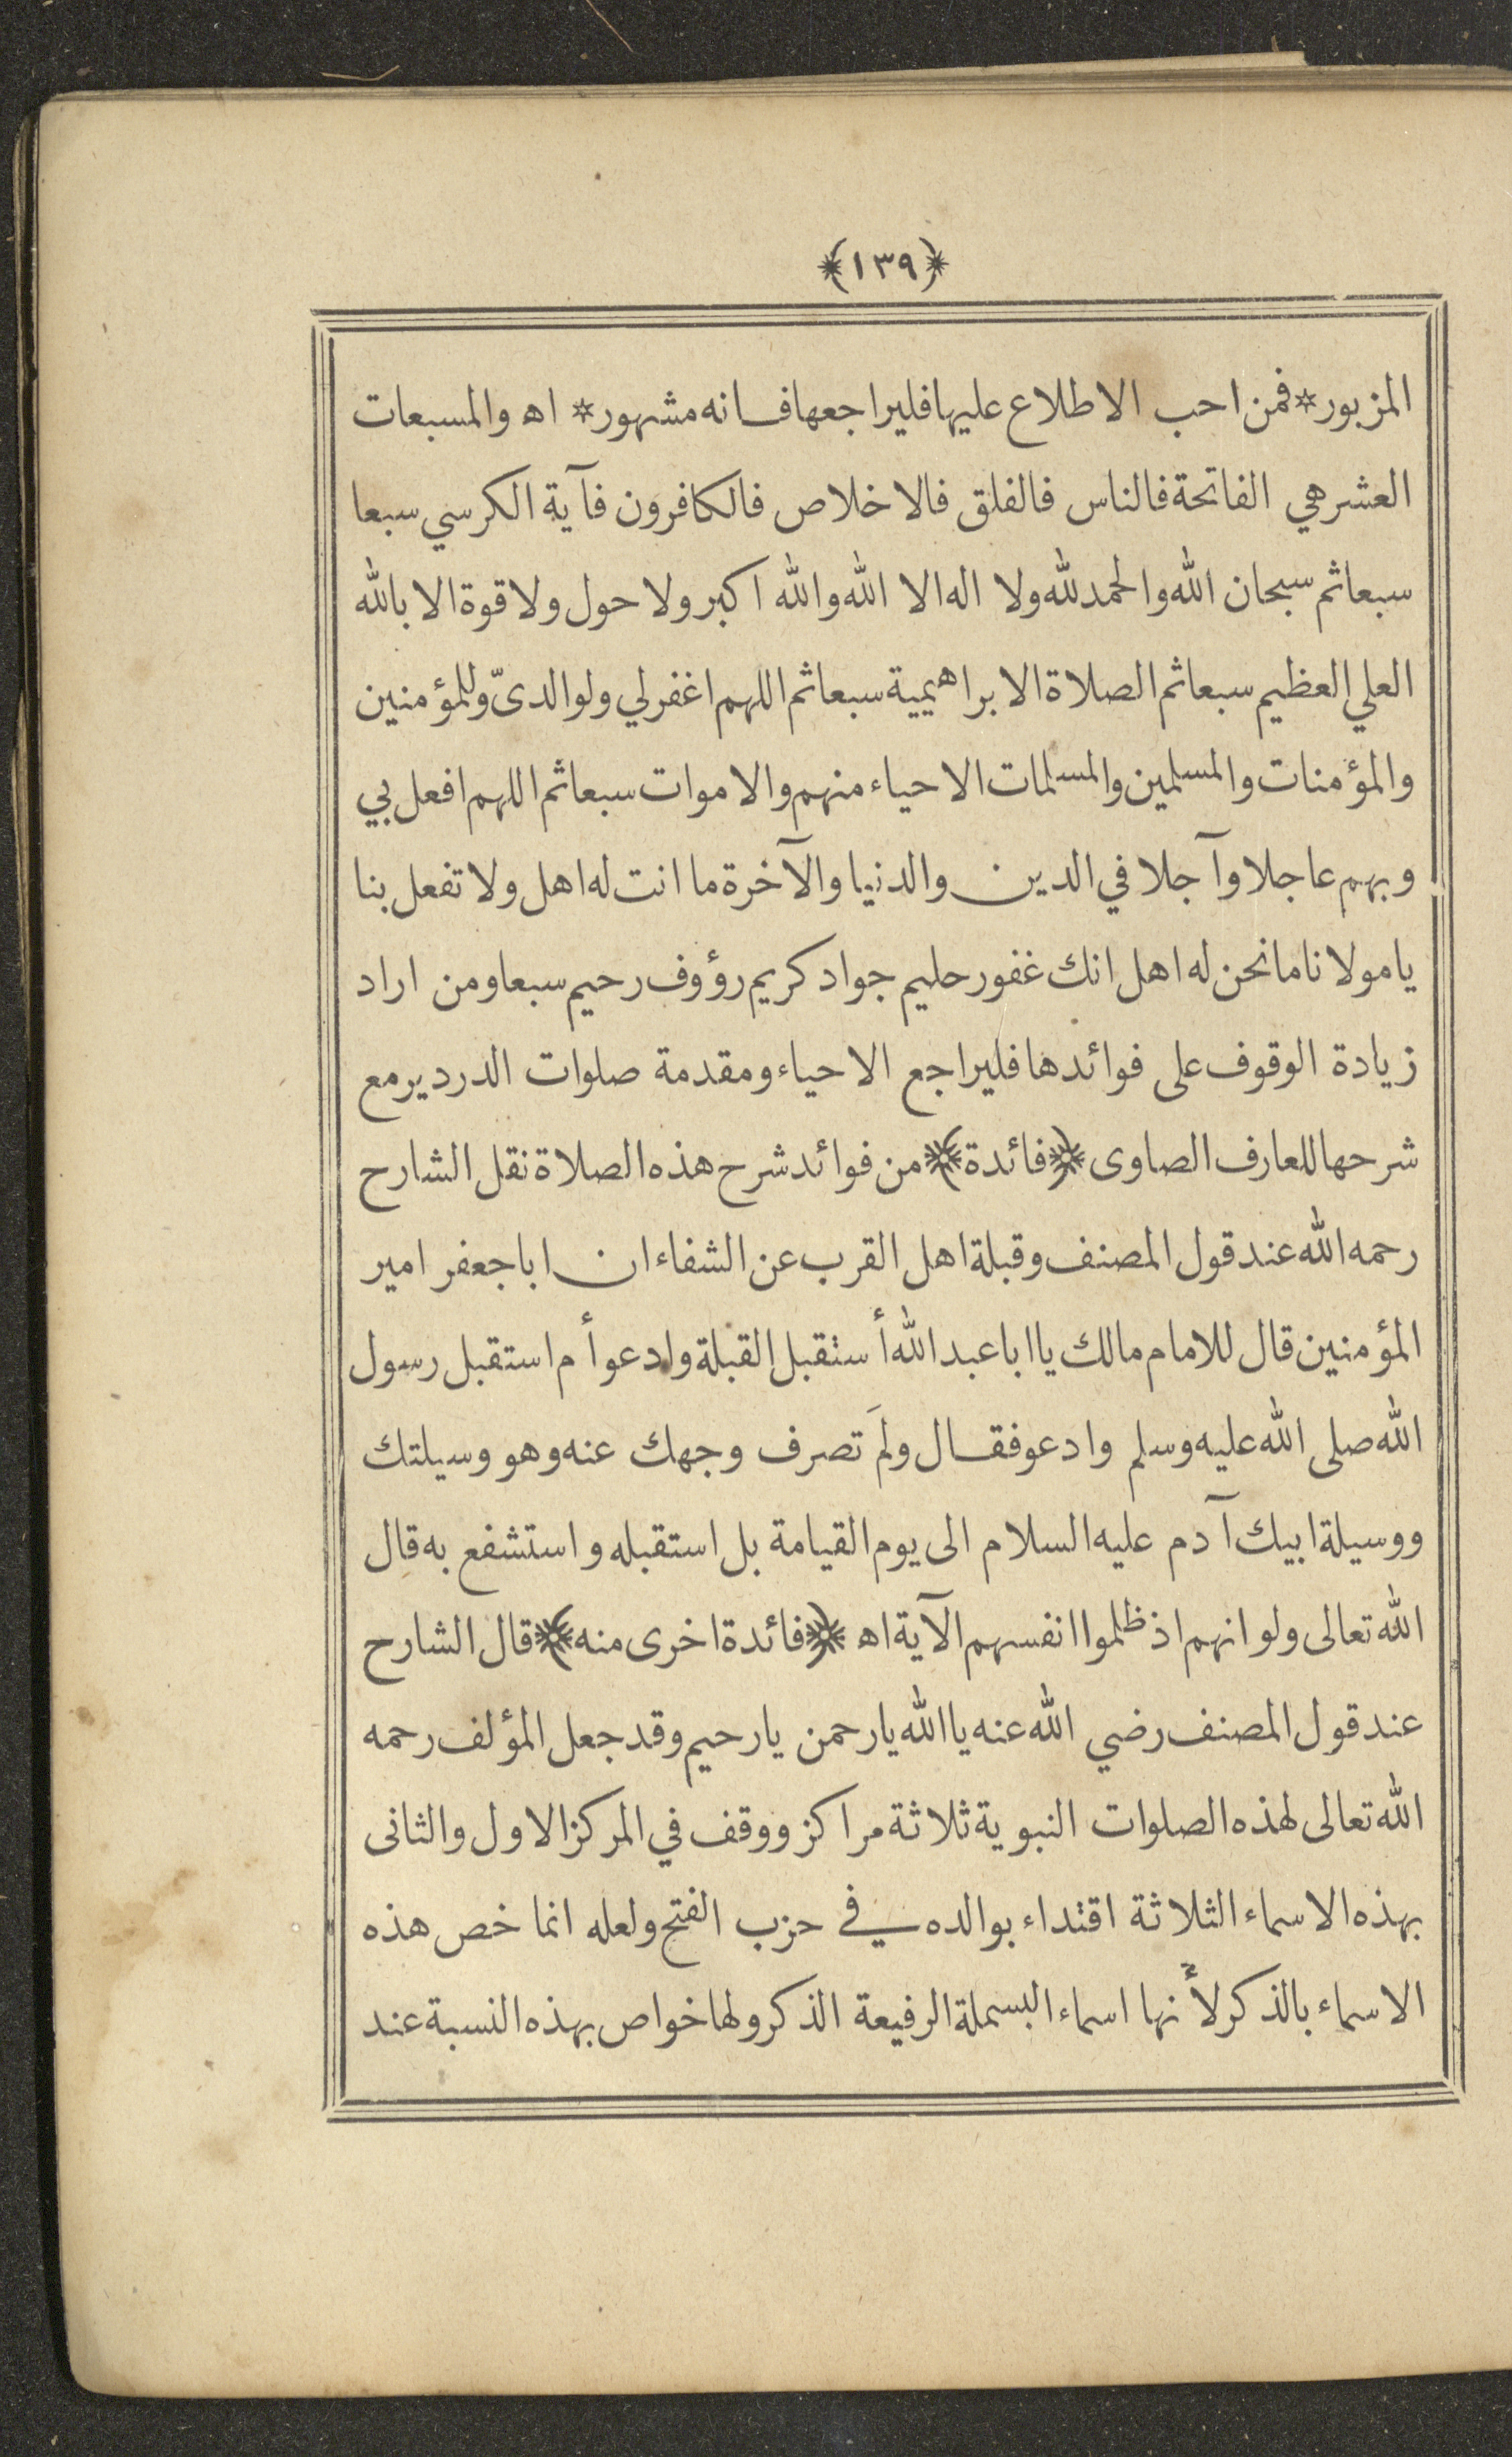 ﴿١٣٩﴾
المزبور * فمن احب الاطلاع عليها فليراجعها فانه مشهور * اه والمسبعات
العشر هي الفاتحة فالناس فالفلق فالاخلاص فالكافرون فآية الكرسي سبعا
سبعا ثم سبحان الله والحمد لله ولا اله الا الله والله اكبر ولا حول ولا قوة الا بالله
العلي العظيم سبعا ثم الصلاة الابراهيمية سبعا ثم اللهم اغفر لي ولوالدىّ وللمؤمنين
والمؤمنات والمسلمين والمسلمات الاحياء منهم والاموات سبعا ثم اللهم افعل بي
وبهم عاجلا وآجلا في الدين والدنيا والآخرة ما انت له اهل ولا تفعل بنا
يا مولانا ما نحن له اهل انك غفور حليم جواد كريم رؤوف رحيم سبعا ومن اراد
زيادة الوقوف على فوائدها فليراجع الاحياء ومقدمة صلوات الدردير مع
شرحها للعارف الصاوى ﴿فائدة﴾ من فوائد شرح هذه الصلاة نقل الشارح
رحمه الله عند قول المصنف وقبلة اهل القرب عن الشفاء ان ابا جعفر امير
المؤمنين قال للامام مالك يا ابا عبد الله أستقبل القبلة وادعو أم استقبل رسول
الله صلى الله عليه وسلم وادعو فقال ولمَ تصرف وجهك عنه وهو وسيلتك
ووسيلة ابيك آدم عليه السلام الى يوم القيامة بل استقبله واستشفع به قال
الله تعالى ولو انهم اذ ظلموا انفسهم الآية اه ﴿فائدة اخرى منه﴾ قال الشارح
عند قول المصنف رضي الله عنه يا الله يا رحمن يا رحيم وقد جعل المؤلف رحمه
الله تعالى لهذه الصلوات النبوية ثلاثة مراكز ووقف في المركز الاول والثانى
بهذه الاسماء الثلاثة اقتداء بوالده في حزب الفتح ولعله انما خص هذه
الاسماء بالذكر لأنها اسماء البسملة الرفيعة الذكر ولها خواص بهذه النسبة عند